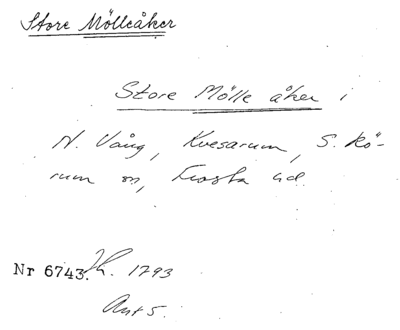 Store Mölleåker
Store Mölle åker i
N. Vång, Kvesarum, S. Rö-
rum sn, Frosta hd.
Nr 6743. Jh. 1793
Akt 5.